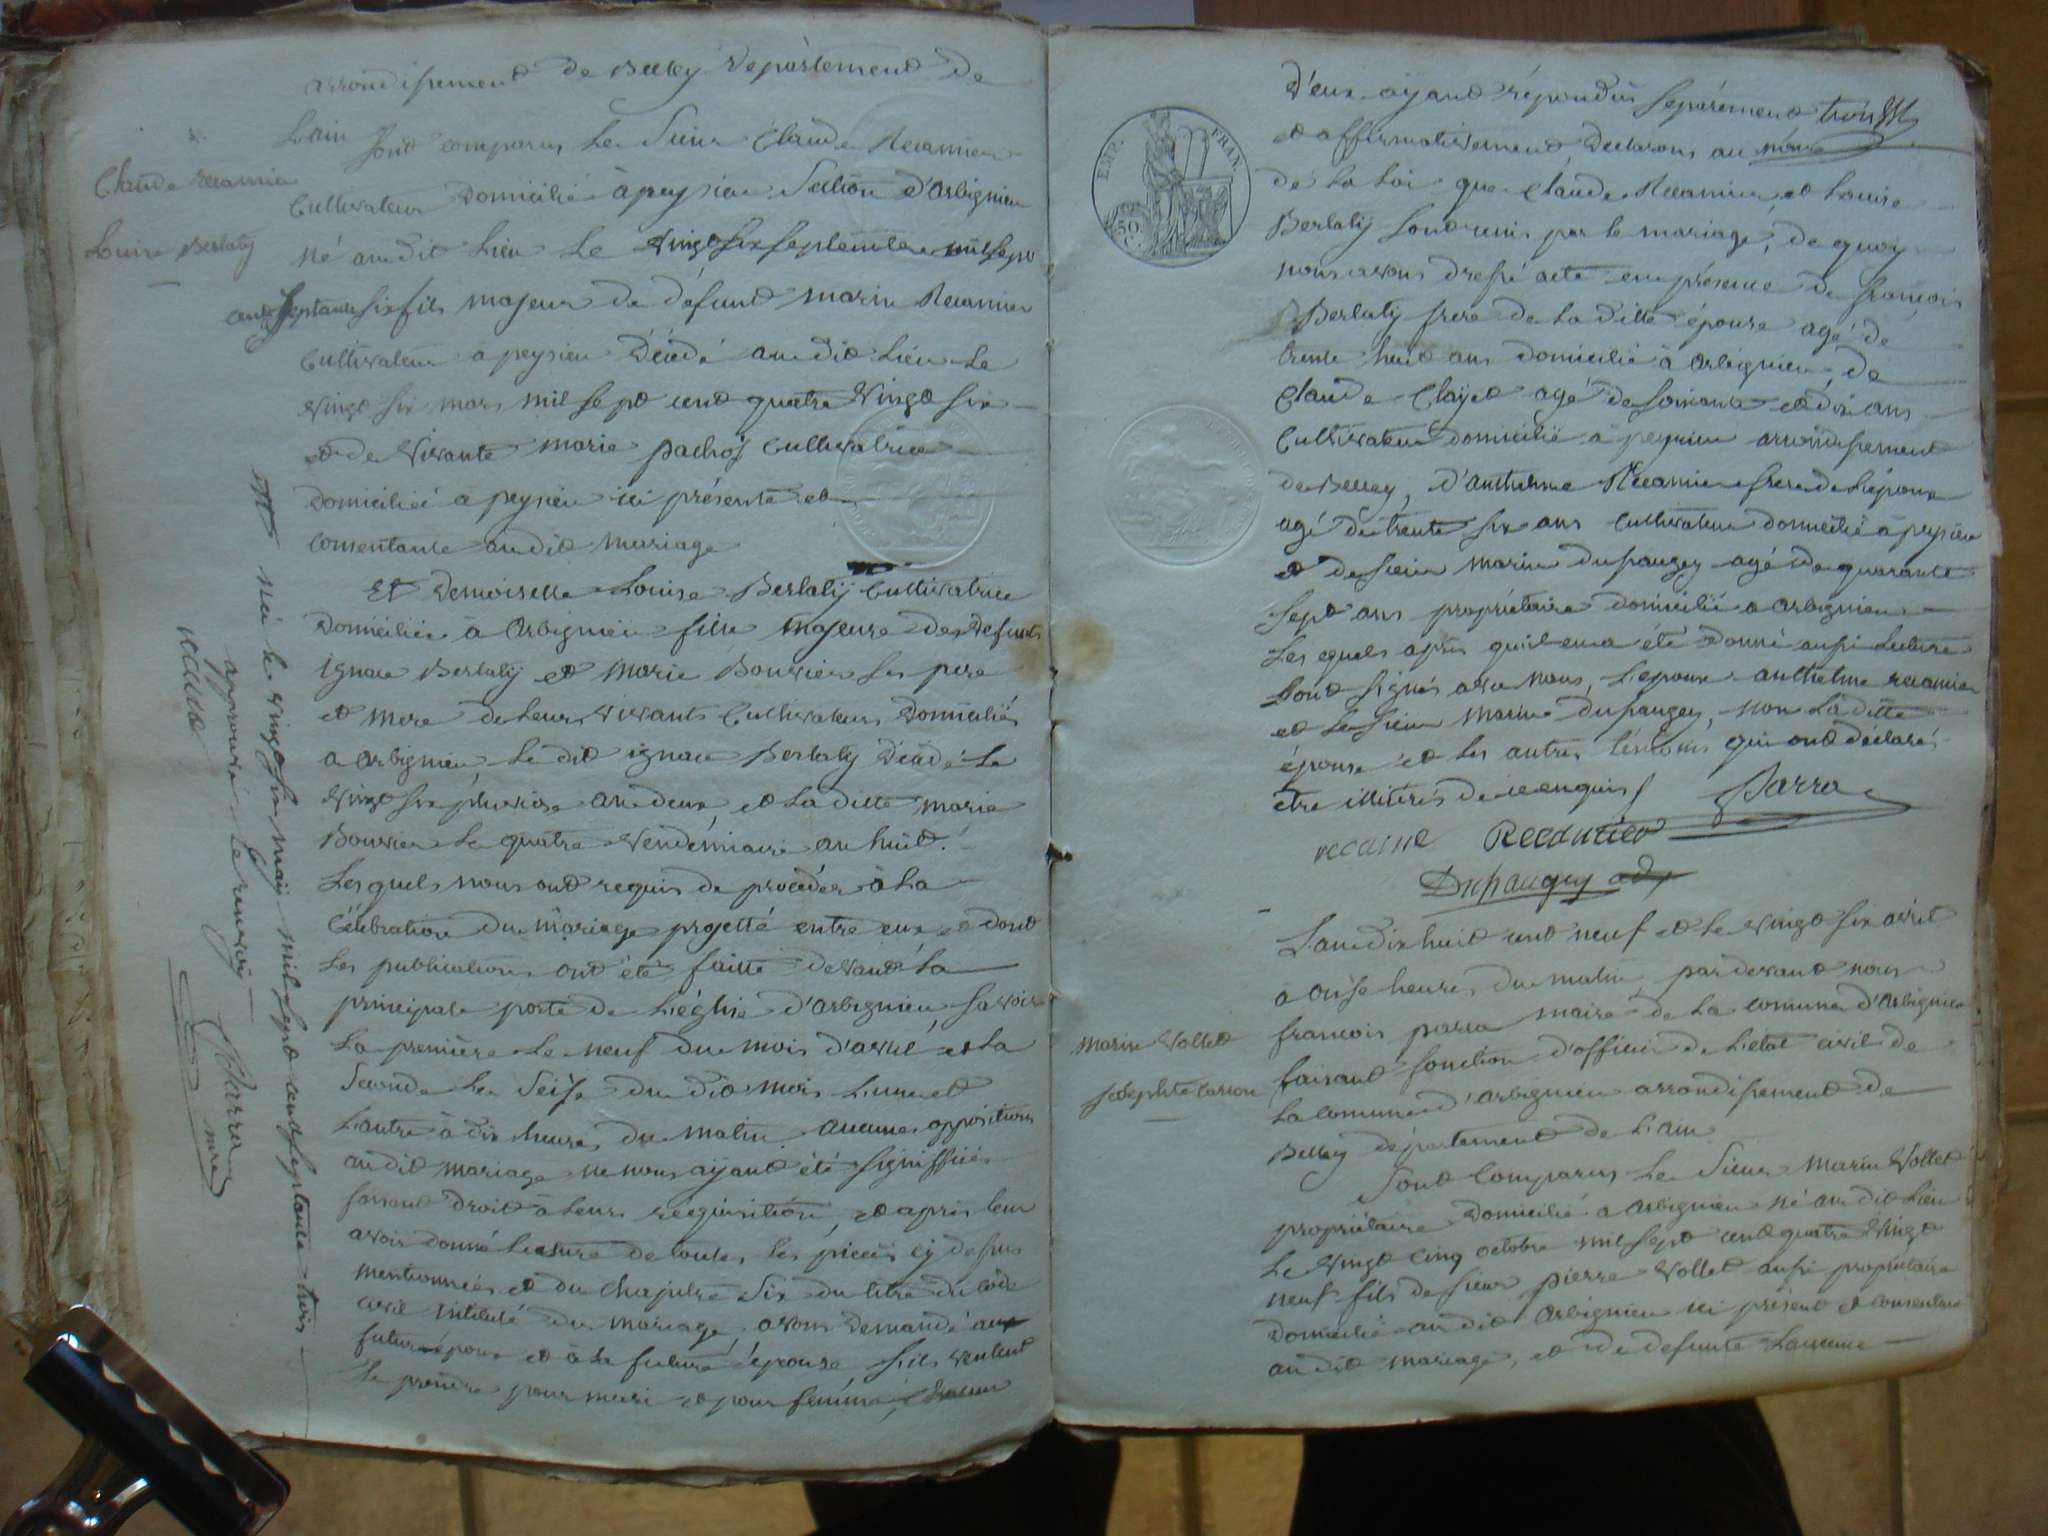 arrondissement de Belley département de
Lain sont comparus Le Sieur Claude Recamier
Claude recamier
Cultivateur Domicilié à peyzieu Section d'Arbignieu
Louise Berlaty
né audit Lieu Le vingt six septembre mil sept
cent septante six fils majeur de défunt marin Recamier
Cultivateur a peyzieu Décédé audit Lieu Le
vingt six mars mil sept cent quatre vingt six
et de vivante marie pachoj Cultivatrice
Domiciliée a peyzieu ici présente et
consentante audit mariage
Et Demoiselle Louise Berlatij Cultivatrice
Domiciliée à Arbignieu fille majeure des Defunts
ignace Berlatij et Marie Bouvier ses pere
et mere de Leurs vivants Cultivateurs Domiciliés
a Arbignieu Le dit ignace Berlaty Décédé Le
vingt six pluviose an deux et La ditte marie
Bouvier Le quatre vendémiaire an huit.
Lesquels nous ont requis de procéder à La
Célébration du mariage projetté entre eux et dont
Les publications ont été faitte devant La
principale porte de L'église d'Arbignieu, savoir
La premiere Le neuf du mois d'avril et La
Seconde Le Seise du dit mois L'une et
L'autre à dix heures du matin aucunes oppositions
audit mariage ne nous ayant été signiffiées
faisant droit à Leurs réquisition, et après leur
avoir donné Lecture de toutes les pieces cy dessus
mentionnées et du chapitre Six du titre du code
civil intitulé du mariage, avons demandé au
futur époux et à La future épouse s'ils veulent
se prendre pour mari et pour femme, chacun
née le vingt six maij mil sept cent septante trois
approuvé le renvoy
recamie
Parra
mre
EMP. FRAN.
50
C.
D'eux ayant répondus séparément
et affirmativement, Declarons au nom
de La Loi que Claude Recamier et Louise
Berlatij sont unis par le mariage, de quoy
nous avons dressé acte en présence de françois
Berlatij frere de La ditte épouse agé de
trente huit ans domicilié à Arbignieu, de
Claude Clayet agé de soixante et dix ans
Cultivateur domicilié à peyzieu arrondissement
de Belley, d'anthelme Recamier frere de L'époux
agé de trente six ans Cultivateur domicilié à peyzieu
et de sieur marin dupaugey agé de quarante
sept ans propriétaire domicilié a Arbignieu
Lesquels après qu'il en a été donné aussi Lecture
sont signés avec nous, L'epoux anthelme recamier
et le sieur marin dupaugey, non La ditte
épouse et les autres témoins qui ont déclarés
etre illitérés de ce enquis
Parra
recamie Recamier
Dupauguy
L'an dix huit cent neuf et le vingt six avril
à onse heures du matin, pardevant nous
françois parra maire de La comune d'Arbignieu
Marin Vollet
faisant fonction d'officier de L'etat civil de
Josephte Carron
La comune d'Arbignieu arrondissement de
Belley département de L'ain
Sont Comparus Le Sieur Marin Vollet
propriétaire Domicilié a Arbignieu né audit Lieu
Le vingt cinq octobre mil sept cent quatre vingt
neuf fils de sieur pierre Vollet aussi propriétaire
Domicilié audit Arbignieu ici présent et consentant
audit mariage, et de defunte